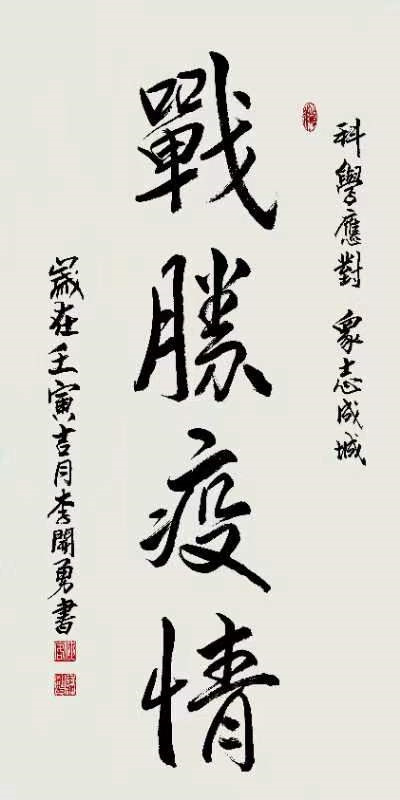 科學應對 眾志成城
戰勝疫情
歲在壬寅吉月李開勇書